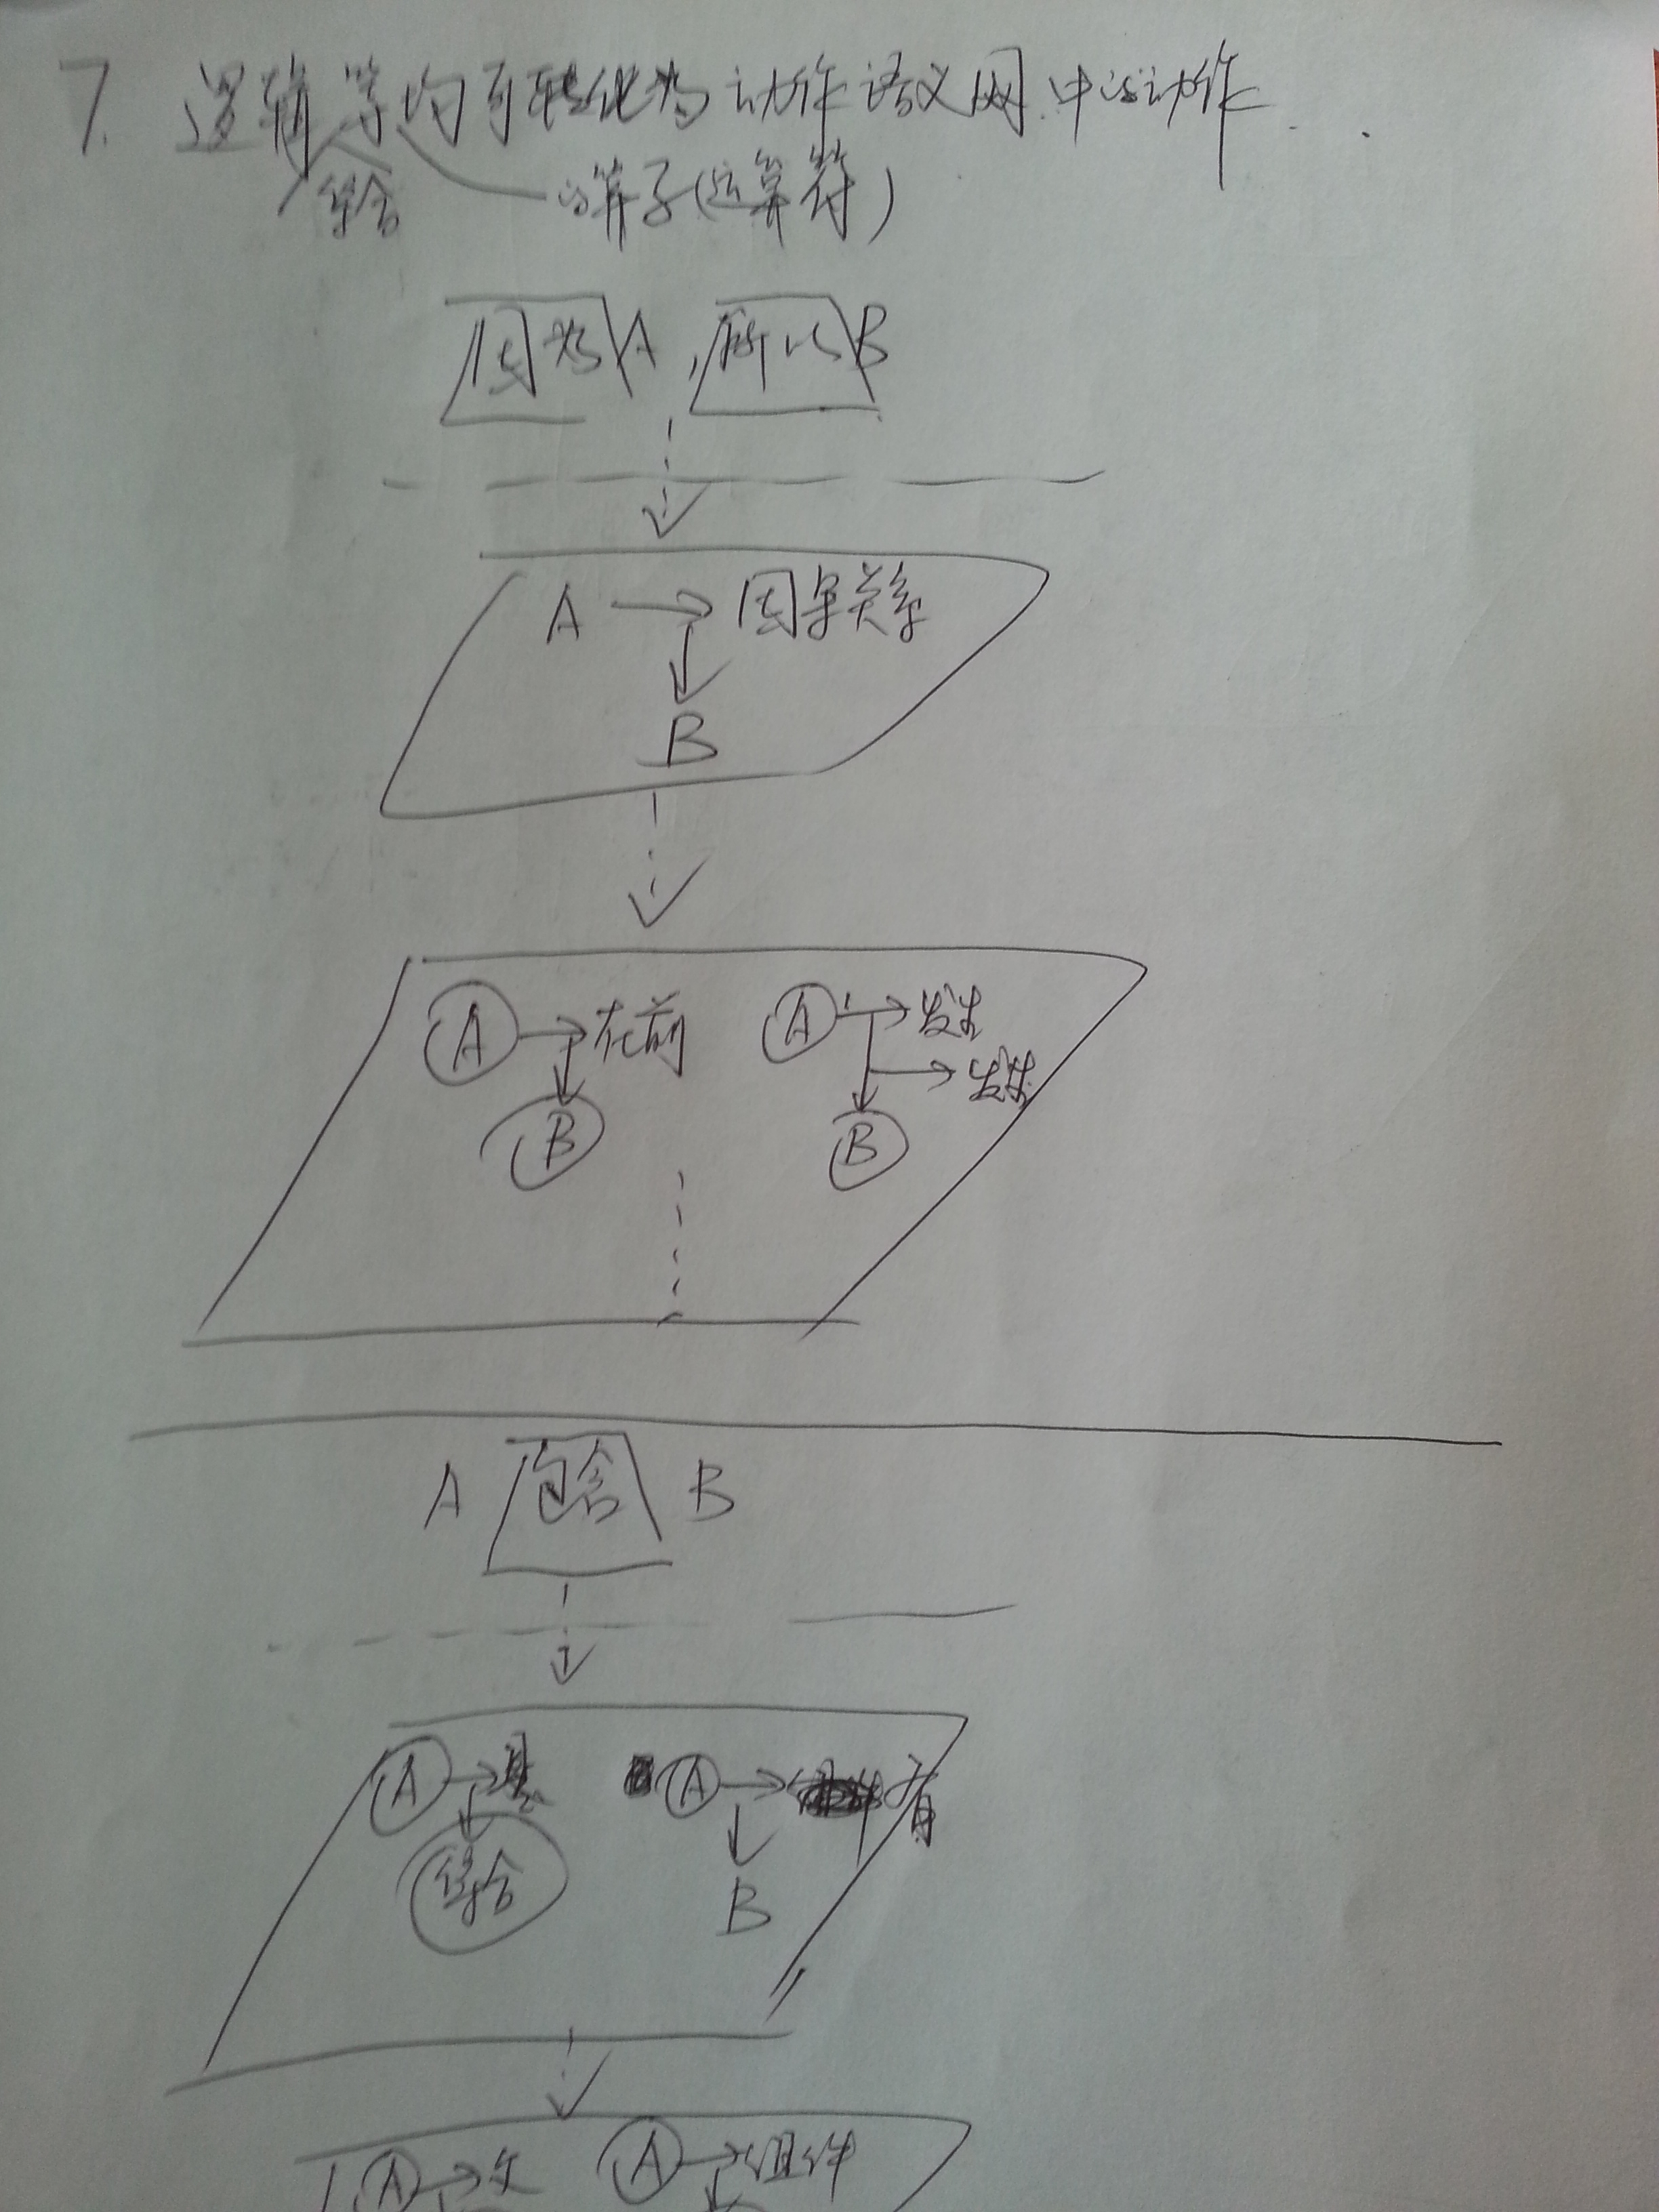 7. 逻辑等均可转化为动作语义网中的动作..
集合 的算子(运算符)
因为A,所以B
A → 因果关系
B
A 在前 A 发生
发生
B B
A 包含 B
A 是 A 有
集合 B
A A 组件